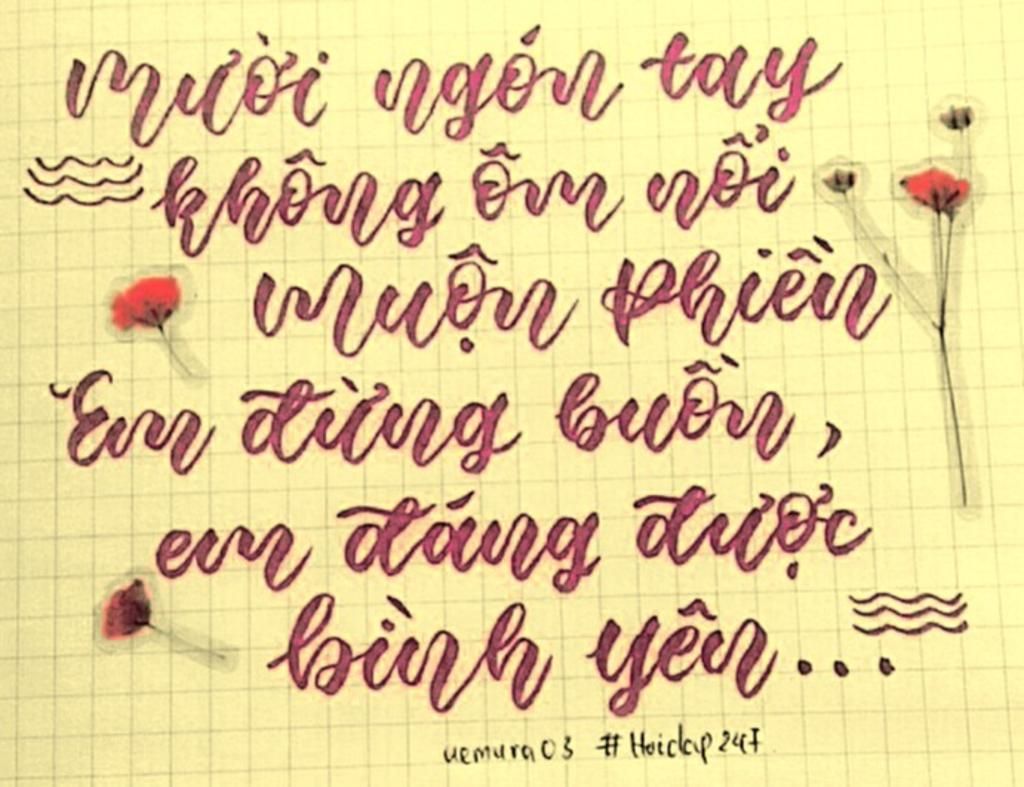 mười ngón tay
không ôm nổi
muộn phiền
Em đừng buồn,
em đáng được
bình yên...
uemura03 #Hoidap247